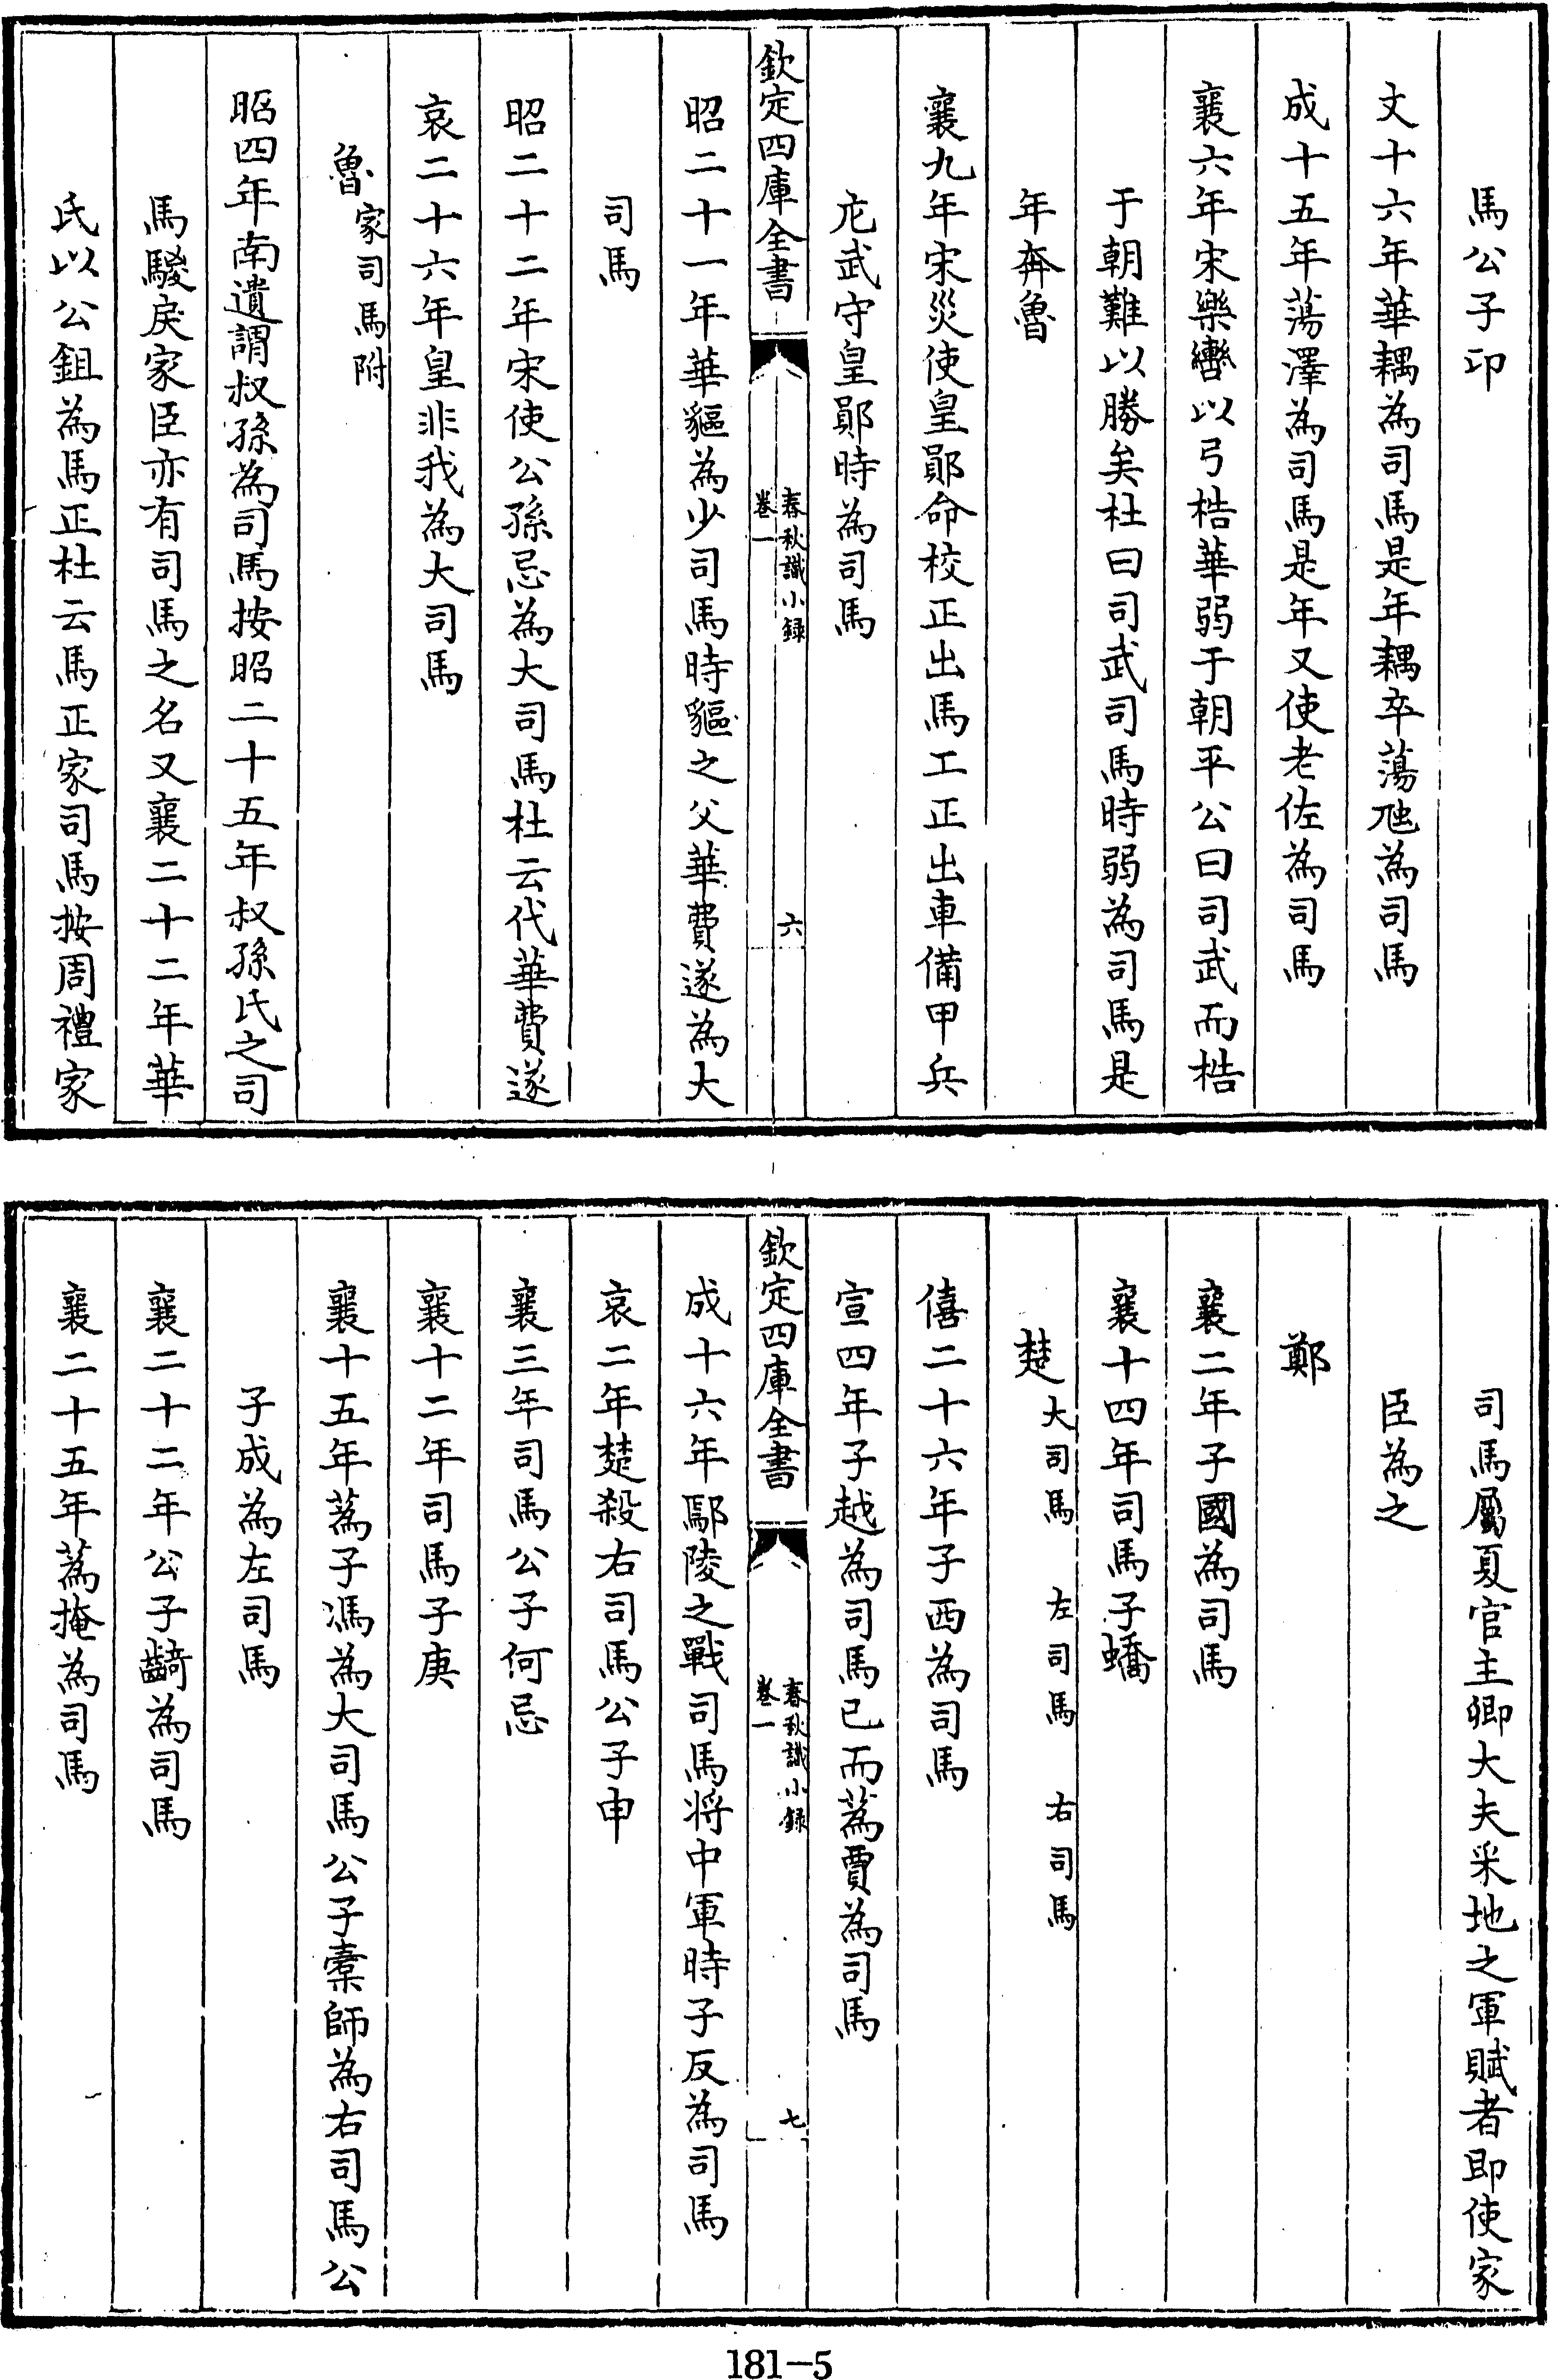 馬公子卬
文十六年華耦為司馬是年耦卒蕩虺為司馬
成十五年蕩澤為司馬是年又使老佐為司馬
襄六年宋樂轡以弓梏華弱于朝平公曰司武而梏
于朝難以勝矣杜曰司武司馬時弱為司馬是
年奔魯
襄九年宋災使皇鄖命校正出馬工正出車備甲兵
庀武守皇鄖時為司馬
欽定四庫全書
春秋識小録
卷一
六
昭二十一年華貙為少司馬時貙之父華費遂為大
司馬
昭二十二年宋使公孫忌為大司馬杜云代華費遂
哀二十六年皇非我為大司馬
魯家司馬附
昭四年南遺謂叔孫為司馬按昭二十五年叔孫氏之司
馬鬷戾家臣亦有司馬之名又襄二十二年華
氏以公鉏為馬正杜云馬正家司馬按周禮家
司馬屬夏官主卿大夫采地之軍賦者即使家
臣為之
鄭
襄二年子國為司馬
襄十四年司馬子蟜
楚大司馬 左司馬 右司馬
僖二十六年子西為司馬
宣四年子越為司馬已而蒍賈為司馬
欽定四庫全書
春秋識小録
卷一
七
成十六年鄢陵之戰司馬将中軍時子反為司馬
哀二年楚殺右司馬公子申
襄三年司馬公子何忌
襄十二年司馬子庚
襄十五年蒍子馮為大司馬公子橐師為右司馬公
子成為左司馬
襄二十二年公子齮為司馬
襄二十五年蒍掩為司馬
181-5